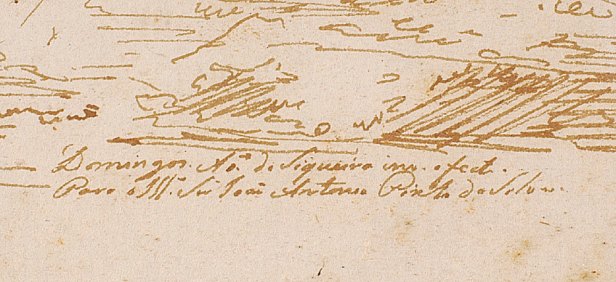 Domingos Ao. de Siqueira inv. e fect.
Para o Illmo. Sr. João Antonio Pinto da Silva.